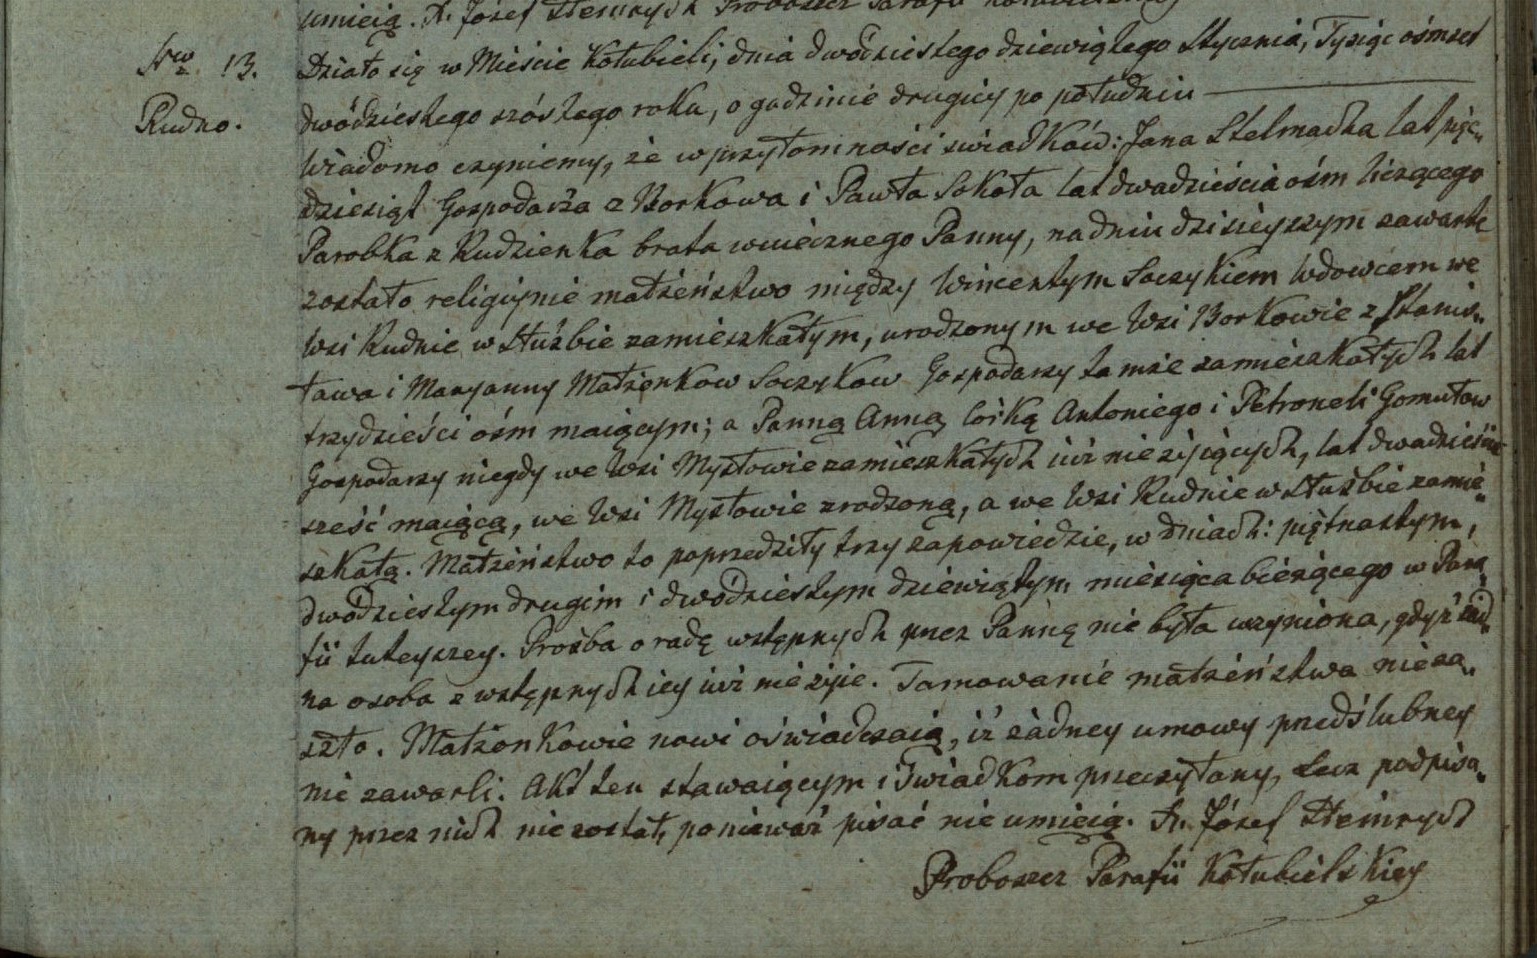 umieią. X. Józef Steinrych Proboszcz Parafii Kołubielskiey
Nro 13. Działo się w Mieście Kołubieli, dnia dwódziestego dziewiątego Stycznia, Tysiąc ośmset
Rudno. dwódziestego szóstego roku, o godzinie drugiey po południu
Wiadomo czyniemy, że w przytomności świadków: Jana Stelmacha lat pięć„
dziesiąt Gospodarza z Borkowa i Pawła Sokoła lat dwadzieścia ośm liczącego
Parobka z Rudzienka brata wuiecznego Panny, na dniu dzisieyszym zawarte
zostało religiynie małżeństwo między Wincentym Soczykiem Wdowcem we
Wsi Rudnie w służbie zamieszkałym, urodzonym we Wsi Borkowie z Stanis„
ława i Maryanny Małżenkow Soczykow Gospodarzy tamże zamieszkałych lat
trzydzieści ośm maiącym; a Panną Anną córką Antoniego i Petroneli Gomułow
Gospodarzy niegdy we Wsi Mysłowie zamieszkałych iuż nieżyiących, lat dwadzieścia
sześć maiącą, we Wsi Mysłowie zrodzoną, a we Wsi Rudnie w służbie zamie„
szkałą. Małżeństwo to poprzedziły trzy zapowiedzie, w dniach: piętnastym,
dwódziestym drugim i dwódziestym dziewiątym miesiąca bieżącego w Para„
fii tuteyszey. Prośba o radę wstępnych przez Pannę nie była uczyniona, gdyż żad„
na osoba z wstępnych iey iuż nie żyie. Tamowanie małżeństwa nie za„
szło. Małżonkowie nowi oświadczaią, iż żadney umowy przedślubney
nie zawarli. Akt ten stawaiącym i Świadkom przeczytany, Lecz podpisa„
ny przez nich nie został, ponieważ pisać nie umieią. X. Józef Steinrych
Proboszcz Parafii Kołubielskiey